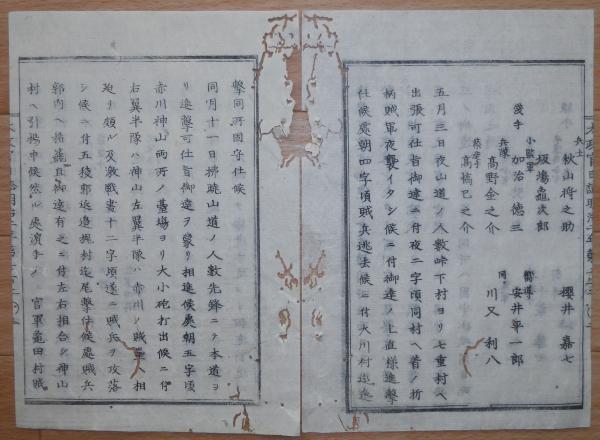 兵士 秋山将之助 櫻井 嘉七
龜次郎
淺手 加治 德三 嚮導 安井平一郎
髙野金之介 同 川又 利八
髙橋己之介
五月三日夜山道ノ人數峠下村ヨリ七重村ヘ
出張可仕旨御達ニ付夜二字頃同村ヘ着ノ折
柄賊軍夜襲イタシ候ニ付御達ノ上直樣進擊
仕候處朝四字頃賊兵逃去候ニ付大川村迄進
擊同所固守仕候
同月十一日拂曉山道ノ人數先鋒ニテ本道ヨ
リ進擊可仕旨御達ヲ蒙リ相進候處朝五字頃
赤川神山両所ノ墓場ヨリ大小砲打出候ニ付
右翼半隊ハ神山左翼半隊ハ赤川ノ賊壘ヘ相
迫リ頗ル及激戰晝十二字頃遂ニ賊兵ヲ攻落
シ候ニ付五稜郭近邊村迄尾擊仕候處賊兵
郭内ヘ楯籠且御達有之ニ付左右相合シ神山
村ヘ引揚申候然ル處濱手ノ 官軍龜田村賊